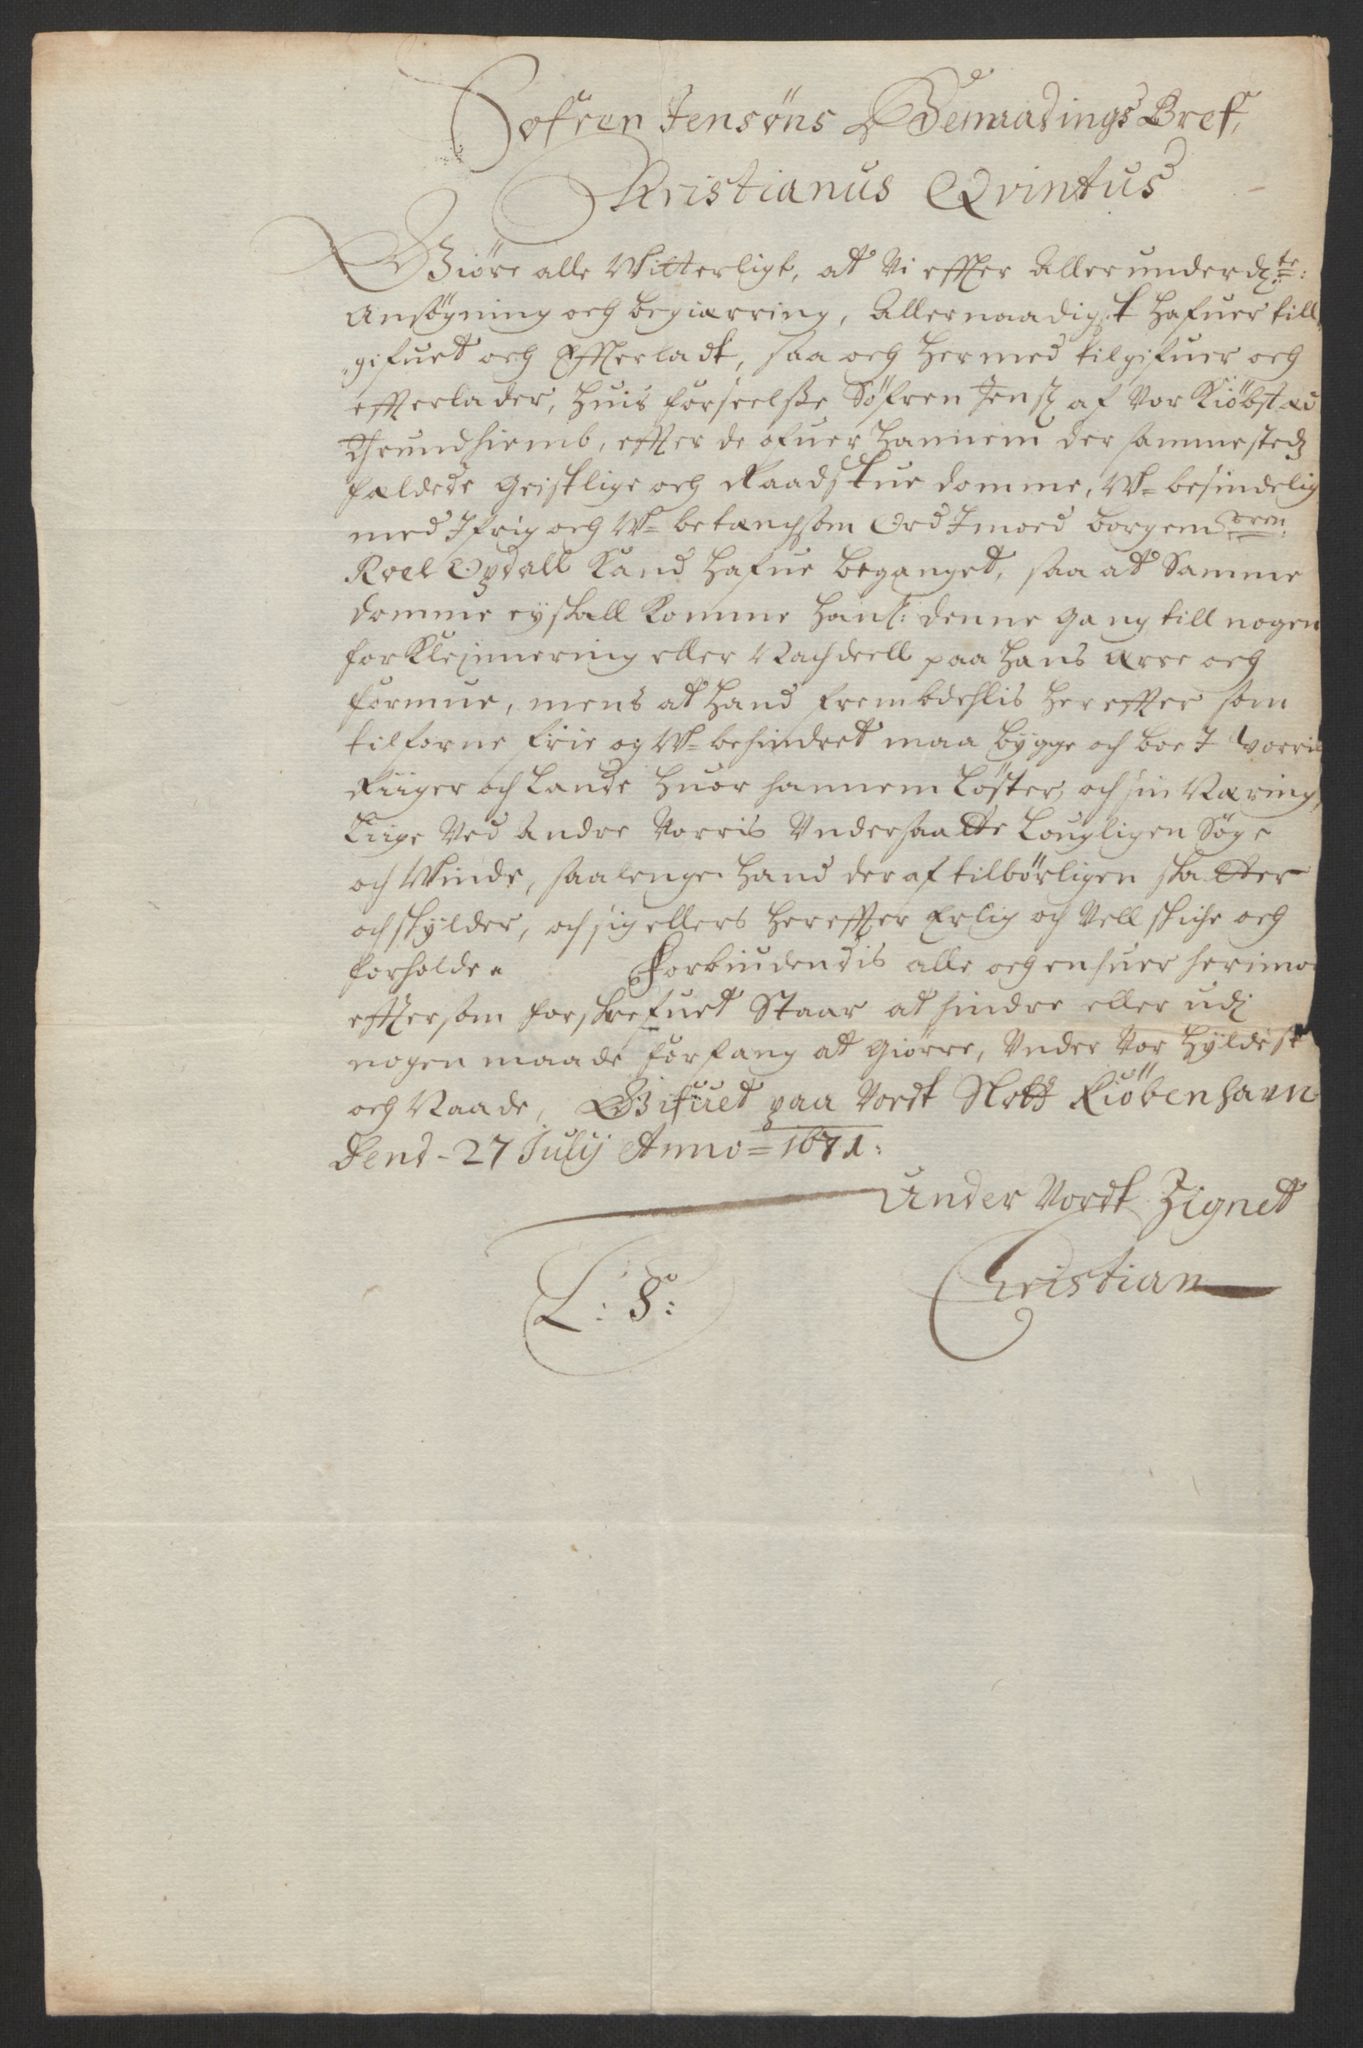 Søfren Jensøns Benaadings Bref,
Christianus Qvintus
Giöre alle Witterligt, at Vi effter Aller underdte:
Ansögning och begiæring, Allernaadigst Hafuer till,
gifuet och Efterladt, saa och Hermed tilgifuer och
efterlader, Huis forseelsse Söfren Jensz af Vor Kiöbsted
Thrundhiemb, effter de ofuer Hannem der sammestedz
fældede Geistlige och Raadstue domme, W=besindelig
med Ifrig och W=betenchsom Ord Imoed borgem
Roel Opdall Kand Hafue beganget, saa at Samme
domme ey skall komme Ham denne Gang till nogen
forklejnnering eller Nachdeell paa Hans ærre och
formue, mens at Hand frembdehlis Hereffter som
tilforne frie og W=behindret maa bygge och boe I Vorris
Riiger och Lande Huor hannem Løster och sin Næring
Liige Ved Andre Vorris Undersaatte Lougligen Søge
och Winde, saalenge Hand deraf tilbörligen skatter
och skylder, och sig ellers Hereffter Erlig och Vell skiche och
forholder Forbiudendis alle och enhuer herimod
effersom forskrefuet Staar at hindre eller udj
nogen maade forfang at Giörre, Under Vor Hyldest
och Naade, Gifuet paa Vordt Slott Kiöbenhavn
Dend-27 Julij Anno=1671:
Under Vordt Zignet
L: S: Christian